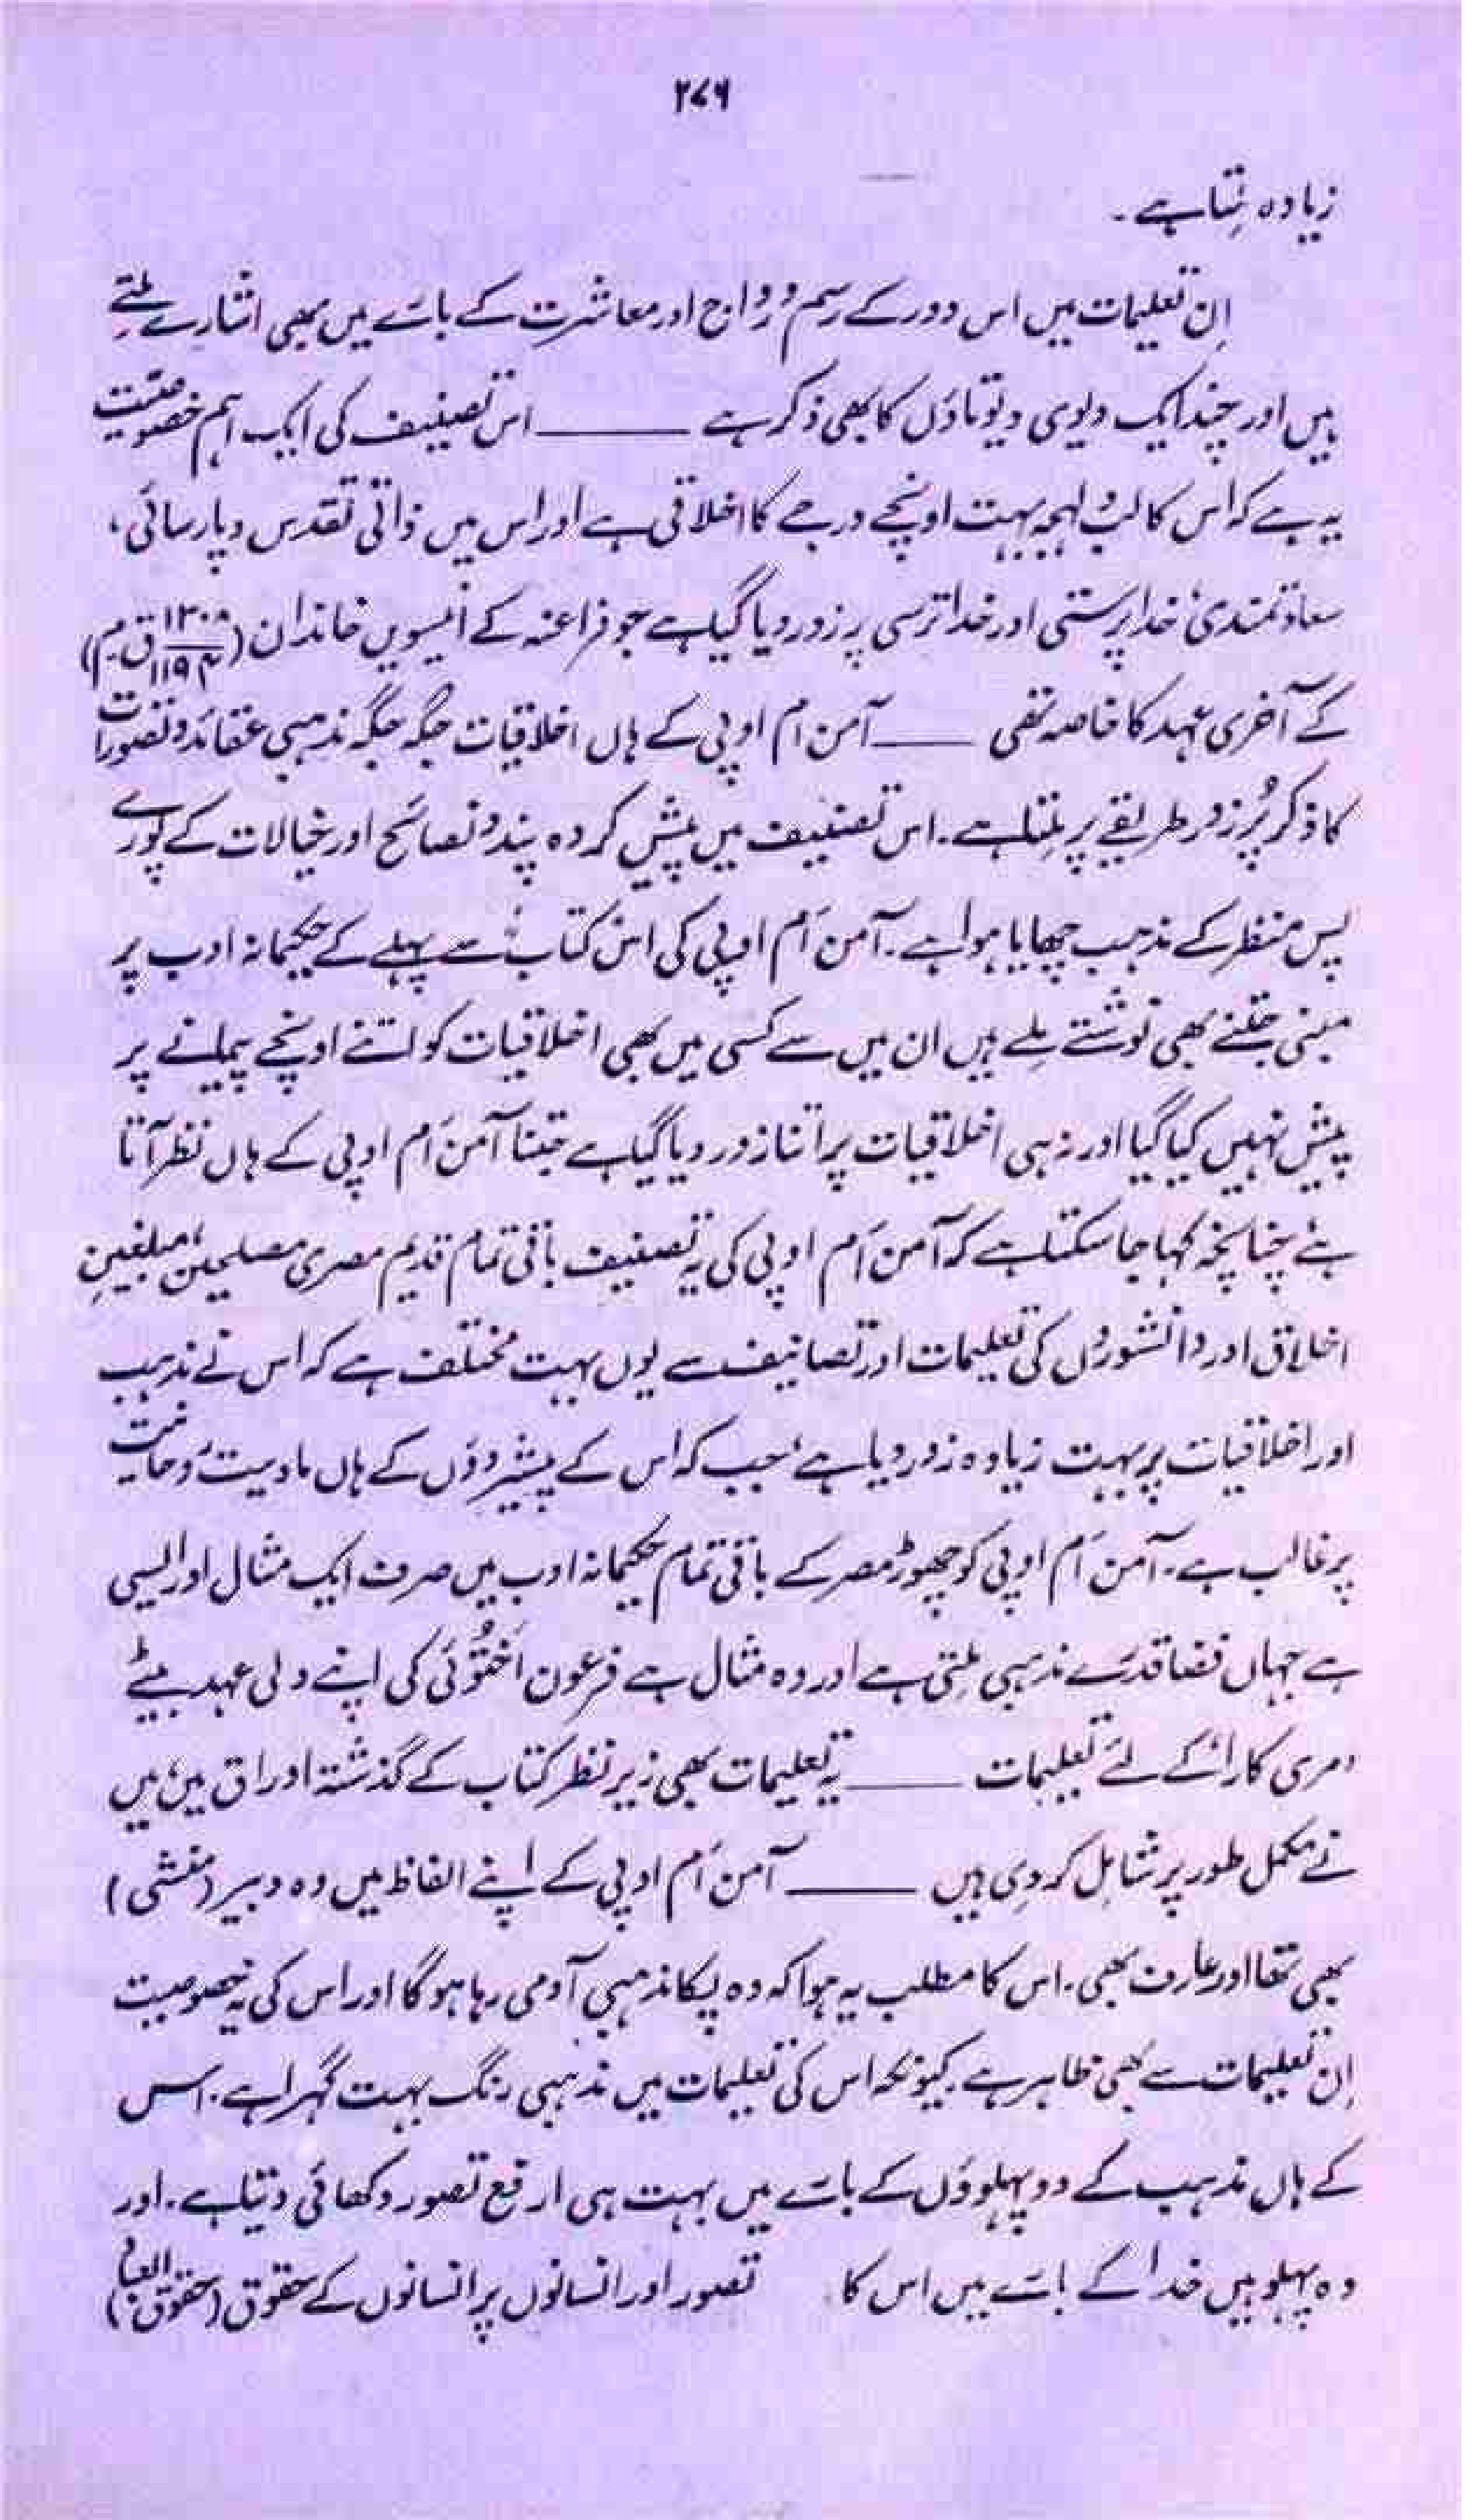 ۲۷۶
زیادہ بنتا ہے۔
اِن تعلیمات میں اس دور کے رسم و رواج اور معاشرت کے بارے میں بھی اشارے ملتے
ہیں اور چند ایک دیوی دیوتاؤں کا بھی ذکر ہے ——— اس تصنیف کی ایک اہم خصوصیت
یہ ہے کہ اُس کا لب و لہجہ بہت اونچے درجے کا اخلاقی ہے اور اس میں ذاتی تقدس و پارسائی،
سعادتمندی، خدا پرستی اور خدا ترسی پر زور دیا گیا ہے جو فراعنہ کے انیسویں خاندان (۱۳۰۸/۱۱۹۴ ق۔م)
کے آخری عہد کا خاصہ تھی ——— آمن اَم اوپی کے ہاں اخلاقیات جگہ جگہ مذہبی عقائد و تصورات
کا ذکر پُر زور طریقے پر ملتا ہے۔ اس تصنیف میں پیش کردہ پند و نصائح اور خیالات کے پورے
پس منظر کے مذہب چھایا ہوا ہے۔ آمن اَم اوپی کی اس کتاب سے پہلے کے حکیمانہ ادب پر
مبنی جتنے بھی نوشتے ملے ہیں ان میں سے کسی میں بھی اخلاقیات کو اتنے اونچے پیمانے پر
پیش نہیں کیا گیا اور نہ ہی اخلاقیات پر اتنا زور دیا گیا ہے جتنا آمن اَم اوپی کے ہاں نظر آتا
ہے، چنانچہ کہا جا سکتا ہے کہ آمن اَم اوپی کی یہ تصنیف باقی تمام قدیم مصری مصلحین، مبلغینِ
اخلاق اور دانشوروں کی تعلیمات اور تصانیف سے یوں بہت مختلف ہے کہ اس نے مذہب
اور اخلاقیات پر بہت زیادہ زور دیا ہے، جب کہ اس کے پیشروؤں کے ہاں مادیت روحانیت
پر غالب ہے۔ آمن اَم اوپی کو چھوڑ مصر کے باقی تمام حکیمانہ ادب میں صرف ایک مثال اور ایسی
ہے جہاں فضا قدرے مذہبی ملتی ہے اور وہ مثال ہے فرعون اَختُوئی کی اپنے ولی عہد بیٹے
'مری کارا' کے لئے تعلیمات ——— یہ تعلیمات بھی زیرِ نظر کتاب کے گذشتہ اوراق میں، میں
نے مکمل طور پر شامل کر دی ہیں ——— آمن اَم اوپی کے اپنے الفاظ میں وہ دبیر (منشی)
بھی تھا اور عارف بھی۔ اس کا مطلب یہ ہوا کہ وہ پکا مذہبی آدمی رہا ہو گا اور اس کی یہ خصوصیت
اِن تعلیمات سے بھی ظاہر ہے کیونکہ اس کی تعلیمات میں مذہبی رنگ بہت گہرا ہے۔ اس
کے ہاں مذہب کے دو پہلوؤں کے بارے میں بہت ہی ارفع تصور دکھائی دیتا ہے۔ اور
وہ پہلو ہیں خدا کے بارے میں اس کا تصور اور انسانوں پر انسانوں کے حقوق (حقوق العباد)